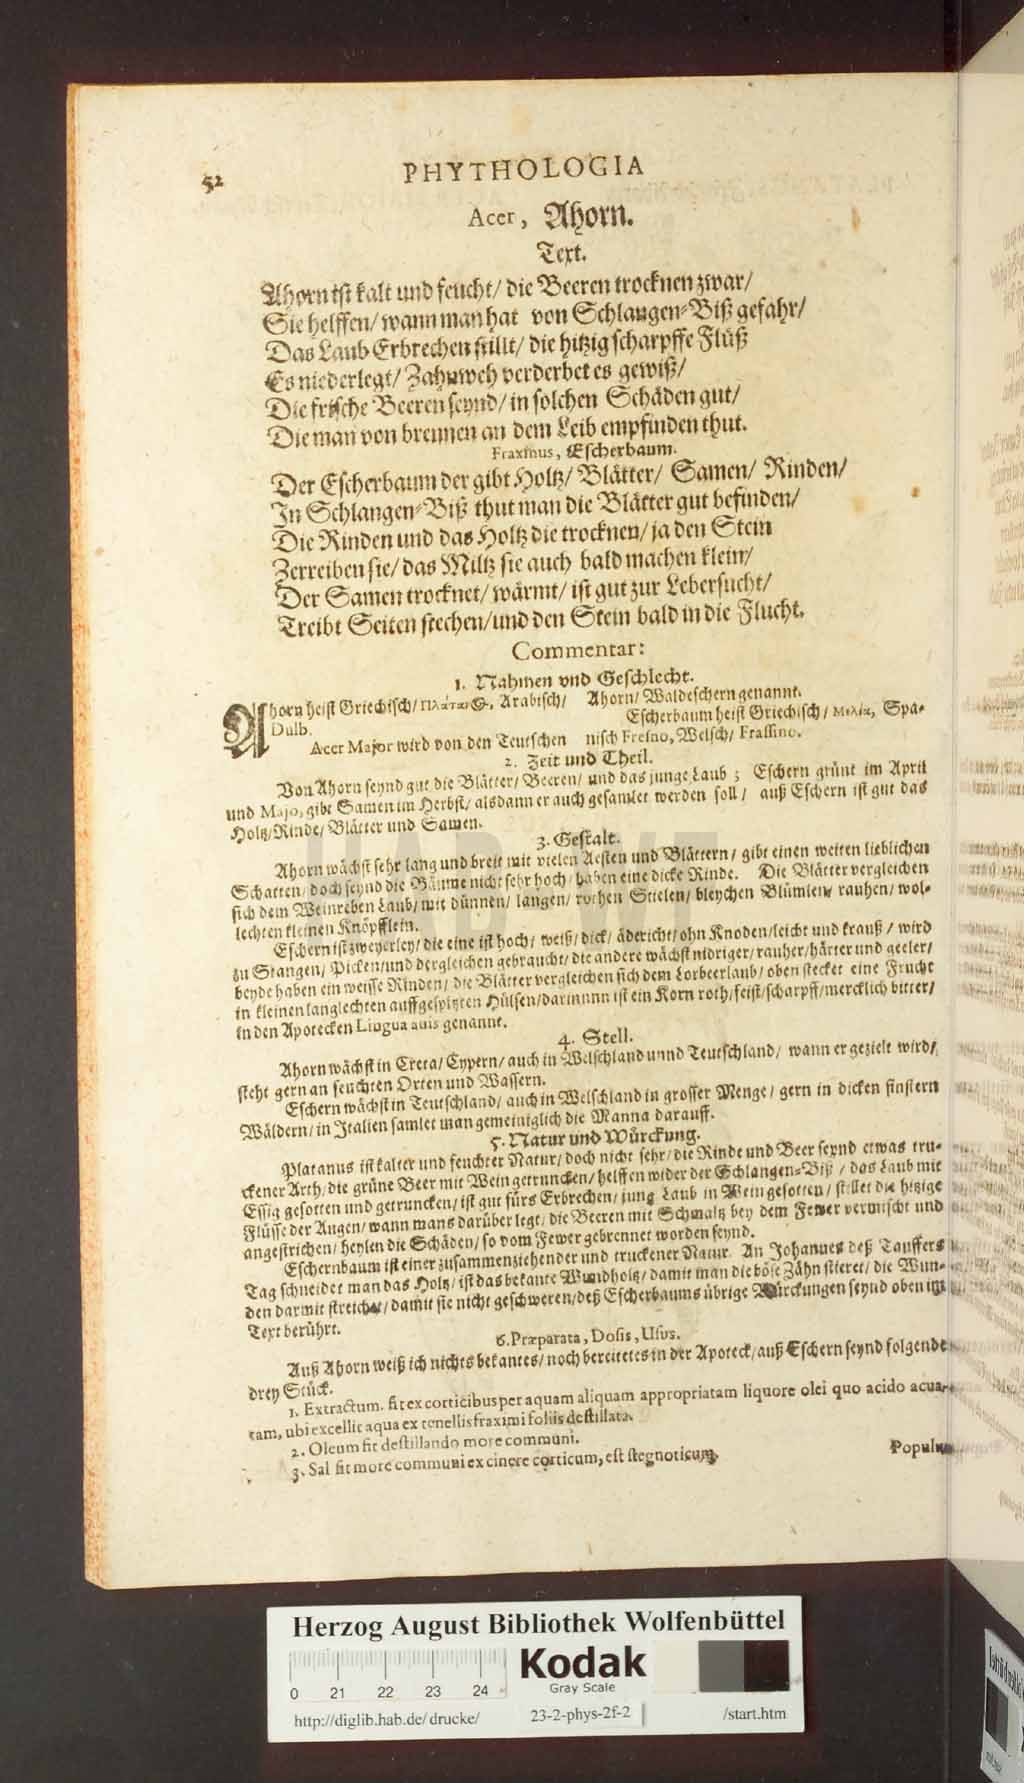 52
PHYTHOLOGIA
Acer, Ahorn.
Text.
Ahorn ist kalt und feucht/ die Beeren trocknen zwar/
Sie helffen/ wann man hat von Schlangen-Biß gefahr/
Das Laub Erbrechen stillt/ die hitzig scharpffe Flüß
Es niederlegt/ Zahnweh verderbet es gewiß/
Die frische Beeren seynd/ in solchen Schäden gut/
Die man von brennen an dem Leib empfinden thut.
Fraxinus, Escherbaum.
Der Escherbaum der gibt Holtz/ Blätter/ Samen/ Rinden/
In Schlangen-Biß thut man die Blätter gut befinden/
Die Rinden und das Holtz die trocknen/ ja den Stein
Zerreiben sie/ das Miltz sie auch bald machen klein/
Der Samen trocknet/ wärmt/ ist gut zur Lebersucht/
Treibt Seiten stechen/ und den Stein bald in die Flucht.
Commentar:
1. Nahmen vnd Geschlecht.
Ahorn heist Griechisch/ Πλάτανος, Arabisch/
Dulb.
Acer Major wird von den Teutschen
Ahorn/ Waldeschern genannt.
Escherbaum heist Griechisch/ Μελία, Spa-
nisch Fresno, Welsch/ Frassino.
2. Zeit und Theil.
Von Ahorn seynd gut die Blätter/ Beeren/ und das junge Laub; Eschern grünt im April
und Majo, gibt Samen im Herbst/ alsdann er auch gesamlet werden soll/ auß Eschern ist gut das
Holtz/ Rinde/ Blätter und Samen.
3. Gestalt.
Ahorn wächst sehr lang und breit mit vielen Aesten und Blättern/ gibt einen weiten lieblichen
Schatten/ doch seynd die Bäume nicht sehr hoch/ haben eine dicke Rinde. Die Blätter vergleichen
sich dem Weinreben Laub/ mit dünnen/ langen/ rothen Stielen/ bleychen Blümlen/ rauhen/ wol-
lechten kleinen Knöpfflein.
Eschern ist zweyerley/ die eine ist hoch/ weiß/ dick/ ädericht/ ohn Knoden/ leicht und krauß/ wird
zu Stangen/ Picken/ und dergleichen gebraucht/ die andere wächst nidriger/ rauher/ härter und geeler/
beyde haben ein weisse Rinden/ die Blätter vergleichen sich dem Lorbeerlaub/ oben stecket eine Frucht
in kleinen langlechten auffgespitzten Hülsen/ darinnn ist ein Korn roth/ feist/ scharpff/ mercklich bitter/
in den Apotecken Lingua avis genannt.
4. Stell.
Ahorn wächst in Creta/ Cypern/ auch in Welschland unnd Teutschland/ wann er gezielt wird/
steht gern an feuchten Orten und Wassern.
Eschern wächst in Teutschland/ auch in Welschland in grosser Menge/ gern in dicken finstern
Wäldern/ in Italien samlet man gemeiniglich die Manna darauff.
5. Natur und Würckung.
Platanus ist kalter und feuchter Natur/ doch nicht sehr/ die Rinde und Beer seynd etwas tru-
ckener Arth/ die grüne Beer mit Wein getruncken/ helffen wider der Schlangen-Biß/ das Laub mit
Essig gesotten und getruncken/ ist gut fürs Erbrechen/ jung Laub in Wein gesotten/ stillet die hitzige
Flüsse der Augen/ wann mans darüber legt/ die Beeren mit Schmaltz bey dem Fewer vermischt und
angestrichen/ heylen die Schäden/ so vom Fewer gebrennet worden seynd.
Eschernbaum ist einer zusammenziehender und truckener Natur. An Johannes deß Tauffers
Tag schneidet man das Holtz/ ist das bekante Wundholtz/ damit man die böse Zähn stieret/ die Wun-
den darmit streichet/ damit sie nicht geschweren/ deß Escherbaums übrige Würckungen seynd oben im
Text berührt.
6. Præparata, Dosis, Usus.
Auß Ahorn weiß ich nichts bekantes/ noch bereitetes in der Apoteck/ auß Eschern seynd folgende
drey Stück.
1. Extractum. fit ex corticibus per aquam aliquam appropriatam liquore olei quo acido acua-
tam, ubi excellit aqua ex tenellis fraximi foliis destillata.
2. Oleum fit destillando more communi.
3. Sal fit more communi ex cinere corticum, est stegnoticum.
Populus
Herzog August Bibliothek Wolfenbüttel
0 21 22 23 24
Kodak
Gray Scale
http://diglib.hab.de/drucke/
23-2-phys-2f-2
/start.htm